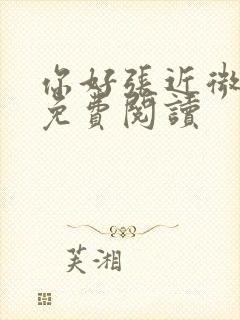 你好張近微
免費閱讀
芙湘